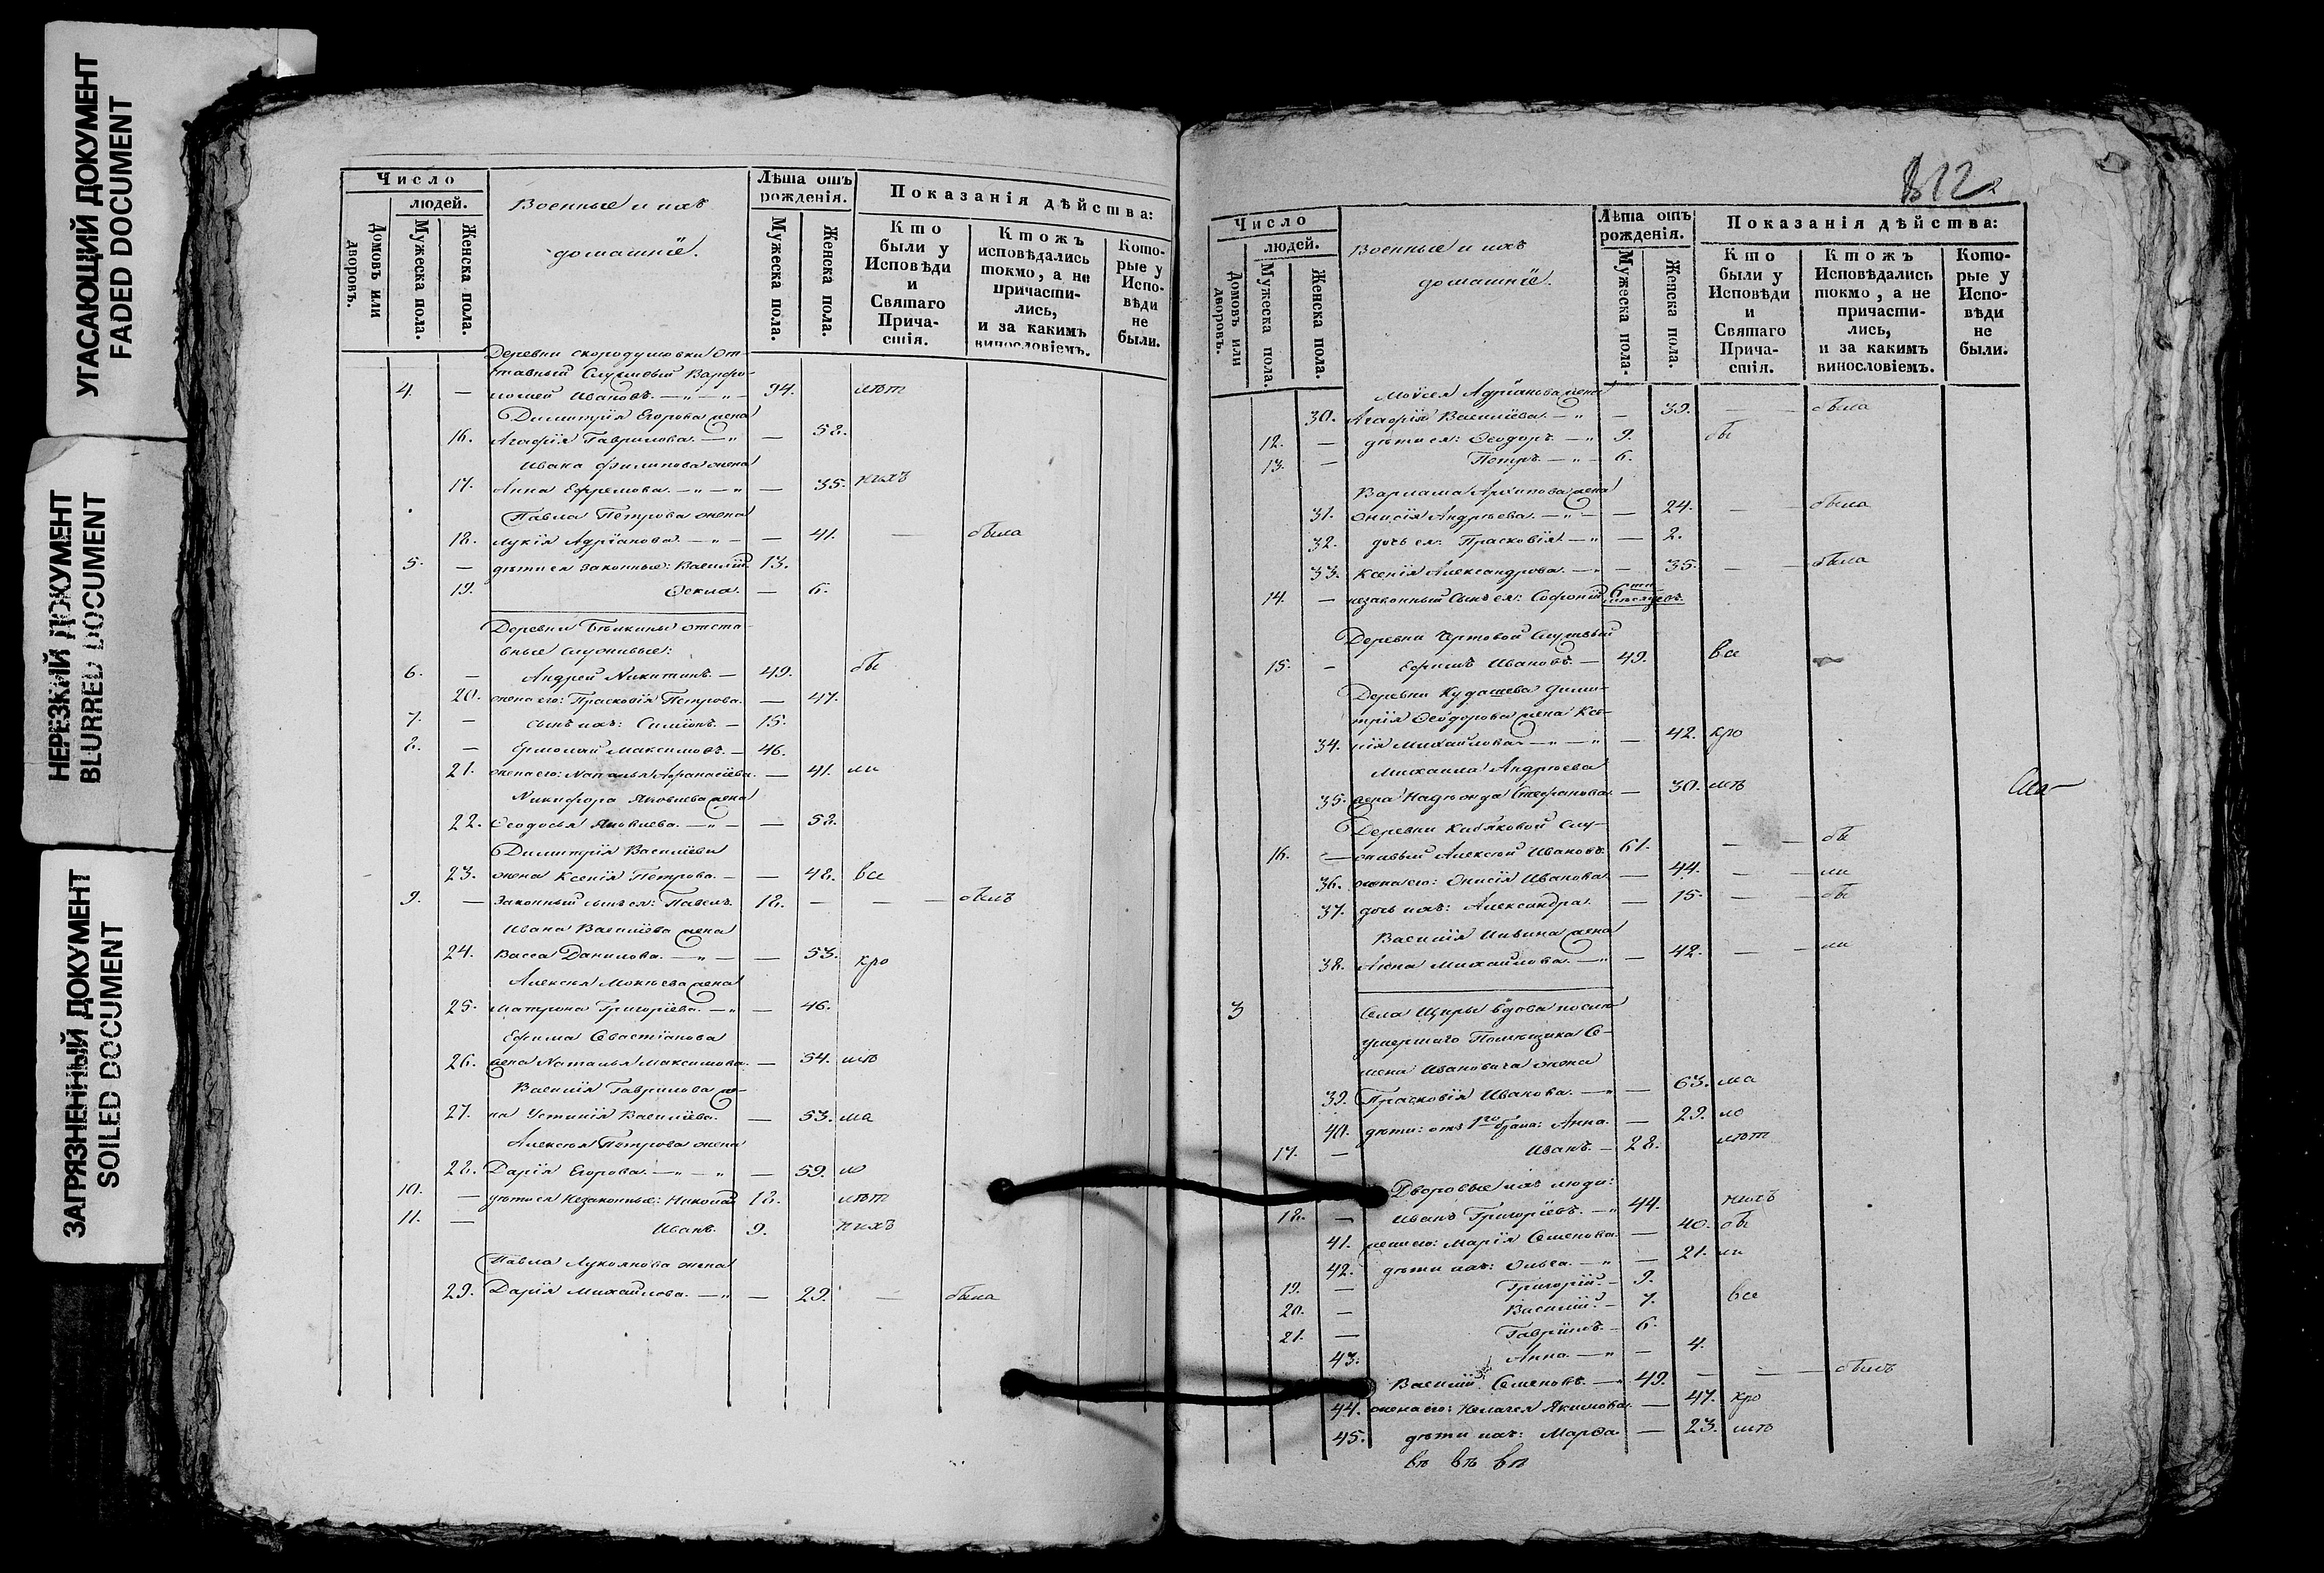 УГАСАЮЩИЙ ДОКУМЕНТ
FADED DOCUMENT
НЕРЕЗКИЙ ДОКУМЕНТ
BLURRED DOCUMENT
ЗАГРЯЗНЕННЫЙ ДОКУМЕНТ
SOILED DOCUMENT
Число
людей.
Домовъ или дворовъ.
Мужеска пола.
Женска пола.
Военные и ихъ
домашніе.
Лѣта отъ рожденія.
Мужеска пола.
Женска пола.
Показанія дѣйства:
Кто были у Исповѣди и Святаго Причастія.
Ктожъ исповѣдались токмо, а не причастились, и за какимъ винословіемъ.
Которые у Исповѣди не были.
Деревни Скородумовки от-
ставный Служивый Варфо-
4. — ломей Ивановъ. — „ — „ — 94. лѣт
Димитрія Егорова жена
16. Агафія Гаврилова. — „ — 58.
Ивана Филипова жена
17. Анна Ефремова. — „ — „ — 35. нихъ
Павла Петрова жена
18. Лукія Адріанова. — „ — — 41. — была
5. — дѣти ея законные: Василій 13.
19. Ѳекла. — 6.
Деревни Быкины отста-
вные служивые:
6. — Андрей Никитинъ. — 49. бы
20. жена его: Прасковія Петрова. — 47.
7. — сынъ ихъ: Симіонъ. — 15.
8. — Ермолай Максимовъ. — 46.
21. жена его: Наталья Афанасіева. — 41. ли
Никифора Яковлева жена
22. Ѳеодосья Яковлева. — „ — — 58.
Димитрія Василіева
23. жена Ксенія Петрова. — — 48. все
9. — Законный сынъ ея: Павелъ. 18. — — — былъ
Ивана Василіева жена
24. Васса Данилова. — „ — — 53. кро
Алексѣя Мокѣева жена
25. Матрона Григоріева. — „ — 46.
Ефима Севастіанова
26. жена Наталья Максимова. — 54. мѣ
Василія Гаврилова же-
27. на Устинія Василіева. — 53. ма
Алексѣя Петрова жена
28. Дарія Егорова. — „ — „ — 59. ло
10. — дѣти ея Незаконные: Николай 18. лѣт
11. — Иванъ. 9. нихъ
Павла Лукоянова жена
29. Дарія Михайлова. — „ — 29. — была
812
Число
людей.
Домовъ или дворовъ.
Мужеска пола.
Женска пола.
Военные и ихъ
домашніе.
Лѣта отъ рожденія.
Мужеска пола.
Женска пола.
Показанія дѣйства:
Кто были у Исповѣди и Святаго Причастія.
Ктожъ Исповѣдались токмо, а не причастились, и за какимъ винословіемъ.
Которые у Исповѣди не были.
Моѵсея Адріанова жена
30. Агафія Василіева. — „ — 39. — — была
12. — дѣти ея: Ѳеодоръ. — „ 9. бы
13. — Петръ. — „ — 6.
Варлама Архипова жена
31. Онисія Андрѣева. — „ — — 24. — — была
32. дочь ея: Прасковія. — „ — 2.
33. Ксенія Александрова. — „ — 35. — — была
14. — незаконный Сынъ ея: Софоній 6ти мѣсяцевъ.
Деревни Чертовой Служивый
15. — Ефимъ Ивановъ. — 49. все
Деревни Кудашева Дими-
трія Ѳеодорова жена Ксе-
34. нія Михайлова — „ — „ — 42. кро
Михаила Андрѣева
35. жена Надѣжда Стефанова. — 30. мѣ
Деревни Кибяковой Слу-
16. — живый Алексѣй Ивановъ. 61. — — бы
36. жена его: Онисія Иванова. — 44. — — ли
37. дочь ихъ: Александра. — 15. — — бы
Василія Ильина жена
38. Анна Михайлова. — „ — 42. — — ли
3 Села Щиры вдова послѣ
умершаго Помѣщика Се-
мена Ивановича жена
39. Прасковія Иванова. — „ — 63. ма
40. дѣти: отъ 1го брака: Анна. — 29. ло
17. — Иванъ. — 28. лѣт
Дворовые ихъ люди:
18. — Иванъ Григоріевъ. — „ 44. нихъ
41. жена его: Марія Семенова. — 40. бы
42. дѣти ихъ: Ольга. — „ — 21. ли
19. — Григорій. — 9.
20. — Василій. — 7. все
21. — Гавріилъ. — 6.
43. Анна. — „ — 4.
Василій Семеновъ. — „ 49. — — — былъ
44. жена его: Пелагея Якимова. — 47. кро
45. дѣти ихъ: Марѳа. — 23. мѣ